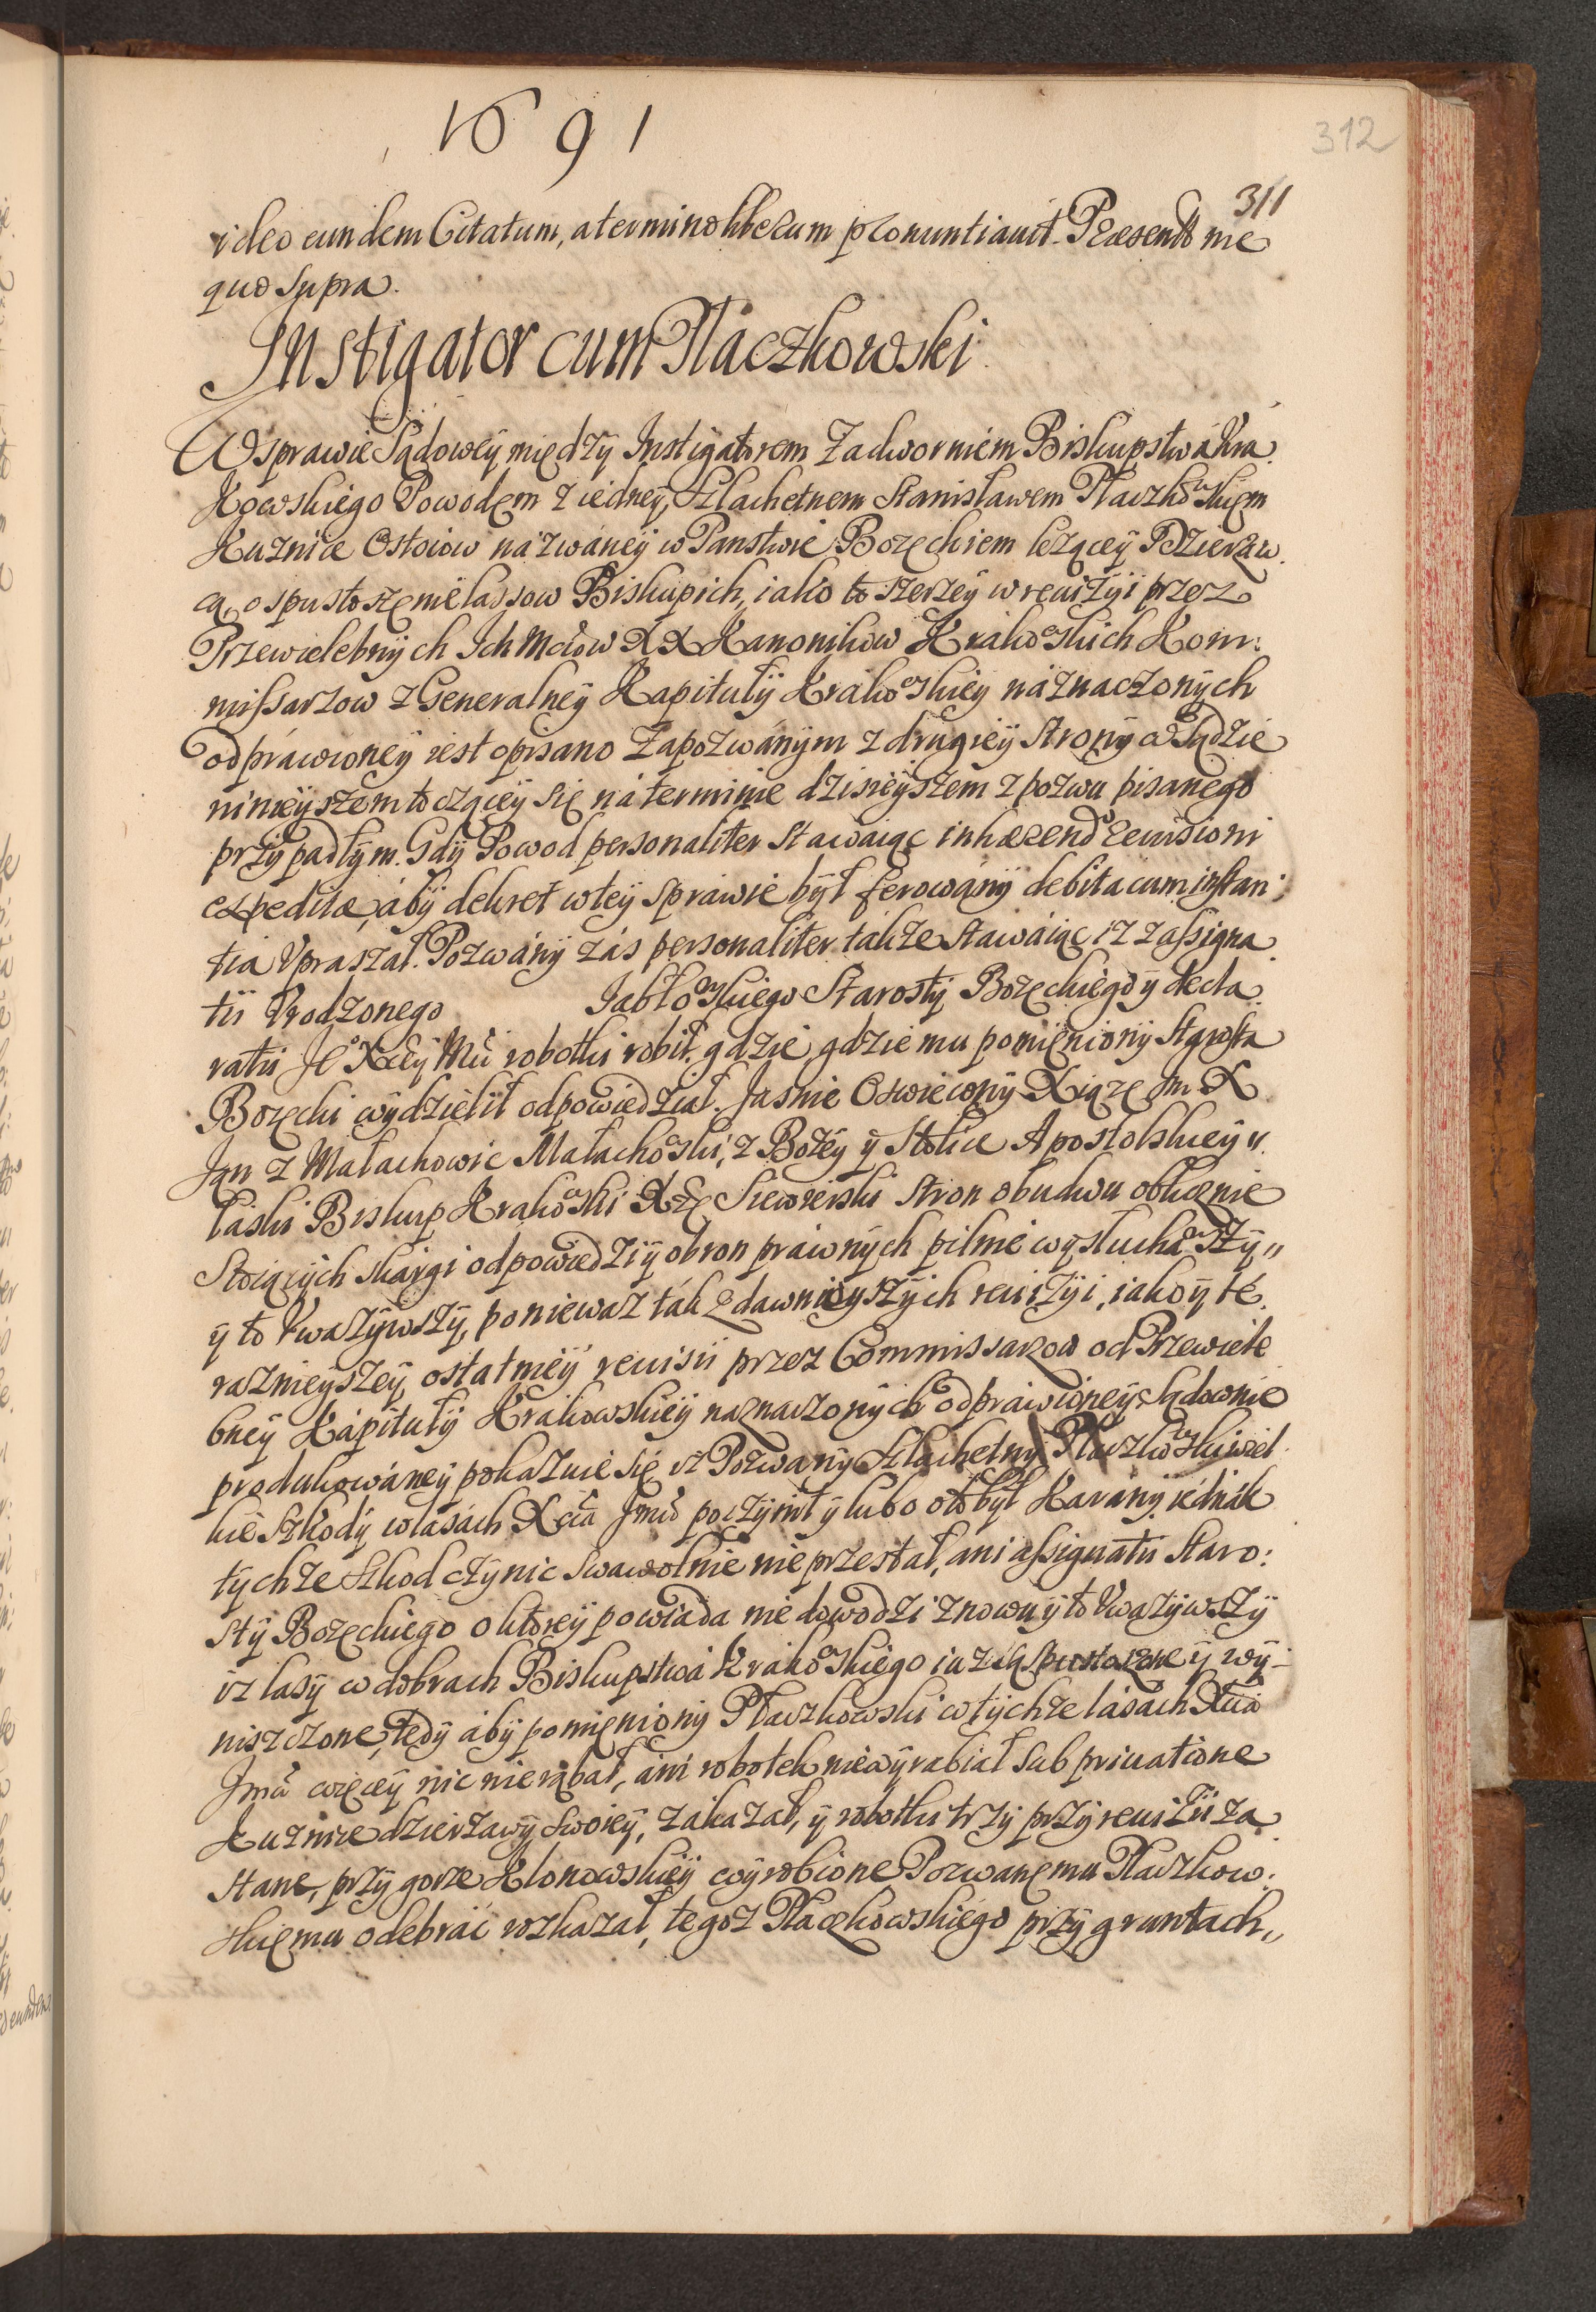 1691
312
311
ideo eundem Citatum, a termino liberum pronuntiauit. Præsentb me
quo supra.
Instigator cum Płaczkowski.
W sprawie Sądowey między Instigatorem Zadworniem Biskupstwa Kra-
kowskiego Powodem z iedney, Szlachetnem Stanisławem Płaczkowskiem
Kuznice Ostoiow názwáney w Panstwie Bozęckiem lezącey Dzierzaw-
cą, o spustoszęnie lassow Biskupich, iako to szerzey w reuizyi przez
Przewielebnych Ich Mciow XX Kanonikow Krakowskich Kom:
missarzow z Generalney Kapituły Krakowskiey náznaczonych
odprawioney iest opisano Zapozwánym z drugiey Strony w Sądzie
ninieyszem toczącey się ná terminie dzisieyszem z pozwu pisanego
przypadłym. Gdy Powod personaliter Stawaiąc inhærendo reuisioni
expeditæ, áby dekret w tey spráwie był ferowány debita cum instan:
tia Vpraszał. Pozwány zás personaliter tákze Stawáiąc iz z assigna-
tii Vrodzonego Jabłowskiego Starosty Bozęckiego y decla-
ratii Je° Xcey Mći robotki robił, gdzie gdzie mu pomięniony Starosta
Bozęcki wydzielił odpowiedział. Jasnie Oswiecony Xiąze Jm X
Jan z Małachowic Małachowski, z Bozey y Stolice Apostolskiey
łáski Biskup Krakowski Xże Siewierski Stron obudwu oblicznie
Stoiących skárgi odpowiedzi y obron práwnych pilnie wysłuchawszy,,
y to Vwazywszy, poniewaz ták z dawnieyszych reuizyi, iako y te-
raznieyszey ostatniey reuisii przez Commissarzow od Przewiele
bney Kápituły Krakowskiey naznaczonych odpráwioney Sądownie
produkowáney pokazuie się iz Pozwany Szlachetny Płaczkowski wiel-
kie Szkody w lásách Xcia Jmći poczynił y lubo o to był Karány, iednák
tychze Szkod czynic swawolnie nie przestał, ani assignatii Staro:
sty Bozęckiego o ktorey powiáda nie dowodzi znowu y to Vwazywszy
iz lasy w dobrach Biskupstwá Krakowskiego iuz są spustoszone y wy-
niszczone, tedy áby pomięniony Płaczkowski w tychze lásách Xcia
Jmći więcey nic nie rąbał, ani robotek nie wyrabiał sub priuatione
Kuznice dzierzawy swoiey, zákazał, y robotki trzy przy reuizii za-
stane, przy gorze Klonowskiey wyrobione Pozwanęmu Płaczkow:
skięmu odebráć rozkazał, tegoz Płaczkowskiego przy gruntach,,